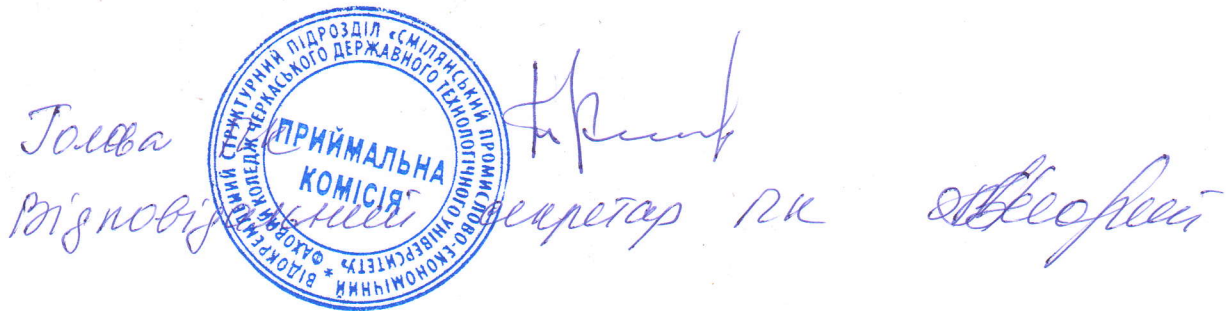 Голова ПК
ВІДОКРЕМЛЕНИЙ СТРУКТУРНИЙ ПІДРОЗДІЛ «СМІЛЯНСЬКИЙ ПРОМИСЛОВО-ЕКОНОМІЧНИЙ
ФАХОВИЙ КОЛЕДЖ ЧЕРКАСЬКОГО ДЕРЖАВНОГО ТЕХНОЛОГІЧНОГО УНІВЕРСИТЕТУ» *
ПРИЙМАЛЬНА
КОМІСІЯ
Відповідальний секретар ПК